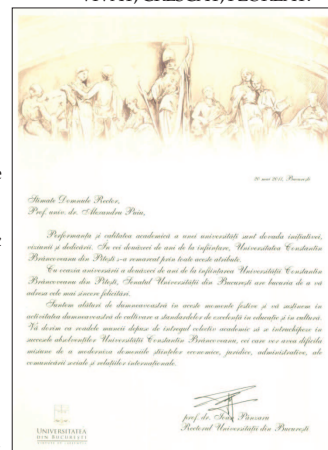 VIVAT, CRESCAT, FLOREAT!
20 mai 2015, Bucureşti
Stimate Domnule Rector,
Prof. univ. dr. Alexandru Puiu,
Performanţa şi calitatea academică a unei universităţi sunt dovada iniţiativei,
viziunii şi dedicării. In cei douăzeci de ani de la înfiinţare, Universitatea Constantin
Brâncoveanu din Piteşti s-a remarcat prin toate aceste atribute.
Cu ocazia aniversării a douăzeci de ani de la înfiinţarea Universităţii Constantin
Brâncoveanu din Piteşti, Senatul Universităţii din Bucureşti are bucuria de a vă
adresa cele mai sincere felicitări.
Suntem alături de dumneavoastră in aceste momente festive şi vă susţinem în
activitatea dumneavoastră de cultivare a standardelor de excelenţă în educaţie şi în cultură.
Vă dorim ca roadele muncii depuse de întregul colectiv academic să se întruchipeze in
succesele absolvenţilor Universităţii Constantin Brâncoveanu, cei care vor avea dificila
misiune de a moderniza domeniile ştiinţelor economice, juridice, administrative, ale
comunicării sociale şi relaţiilor internaţionale.
prof. dr. Ioan Pânzaru
Rectorul Universităţii din Bucureşti
UNIVERSITATEA
DIN BUCUREŞTI